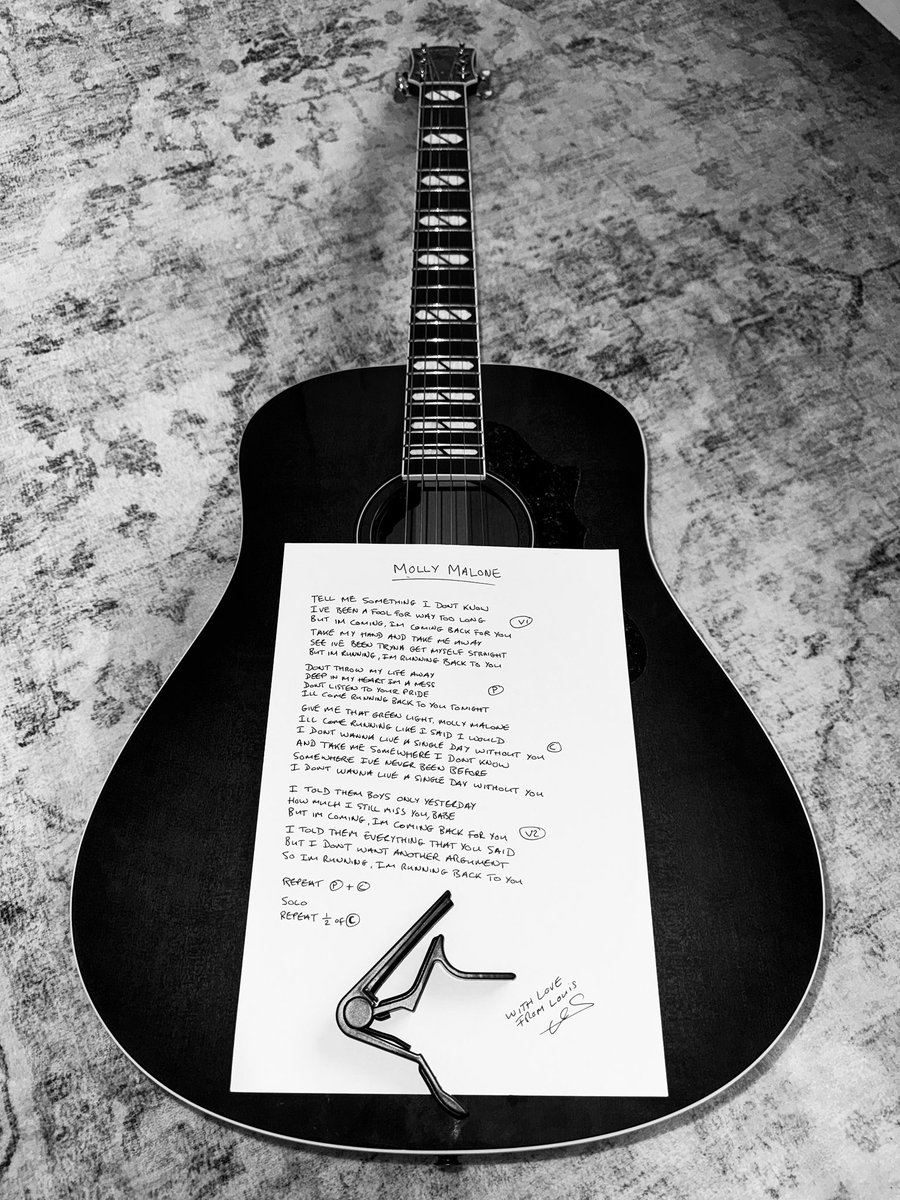 MOLLY MALONE
TELL ME SOMETHING I DONT KNOW
IVE BEEN A FOOL FOR WAY TOO LONG
BUT IM COMING, IM COMING BACK FOR YOU
V1
TAKE MY HAND AND TAKE ME AWAY
SEE IVE BEEN TRYNA GET MYSELF STRAIGHT
BUT IM RUNNING, IM RUNNING BACK TO YOU
DONT THROW MY LIFE AWAY
DEEP IN MY HEART IM A MESS
DONT LISTEN TO YOUR PRIDE
P
ILL COME RUNNING BACK TO YOU TONIGHT
GIVE ME THAT GREEN LIGHT, MOLLY MALONE
ILL COME RUNNING LIKE I SAID I WOULD
I DONT WANNA LIVE A SINGLE DAY WITHOUT YOU
C
AND TAKE ME SOMEWHERE I DONT KNOW
SOMEWHERE IVE NEVER BEEN BEFORE
I DONT WANNA LIVE A SINGLE DAY WITHOUT YOU
I TOLD THEM BOYS ONLY YESTERDAY
HOW MUCH I STILL MISS YOU, BABE
BUT IM COMING, IM COMING BACK FOR YOU
V2
I TOLD THEM EVERYTHING THAT YOU SAID
BUT I DONT WANT ANOTHER ARGUMENT
SO IM RUNNING, IM RUNNING BACK TO YOU
REPEAT P + C
SOLO
REPEAT 1/2 OF C
WITH LOVE
FROM LOUIS